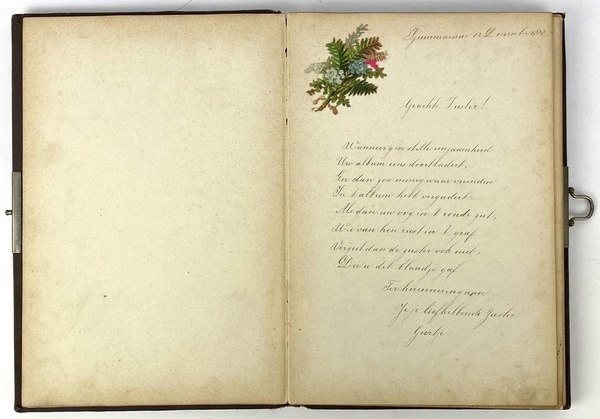 December
Geachte Zuster!
Wanneer g'in stille eenzaamheid
Uw album eens doorbladert,
En dan zoo menig waar vriendin
In 't album hebt vergadert.
Als dan uw oog in 't ronde ziet,
Wie van hen rust in 't graf
Vergeet dan de zuster ook niet,
Die u dit blaadje gaf
Ter herinnering aan
Je je liefhebbende Zuster
Geertje